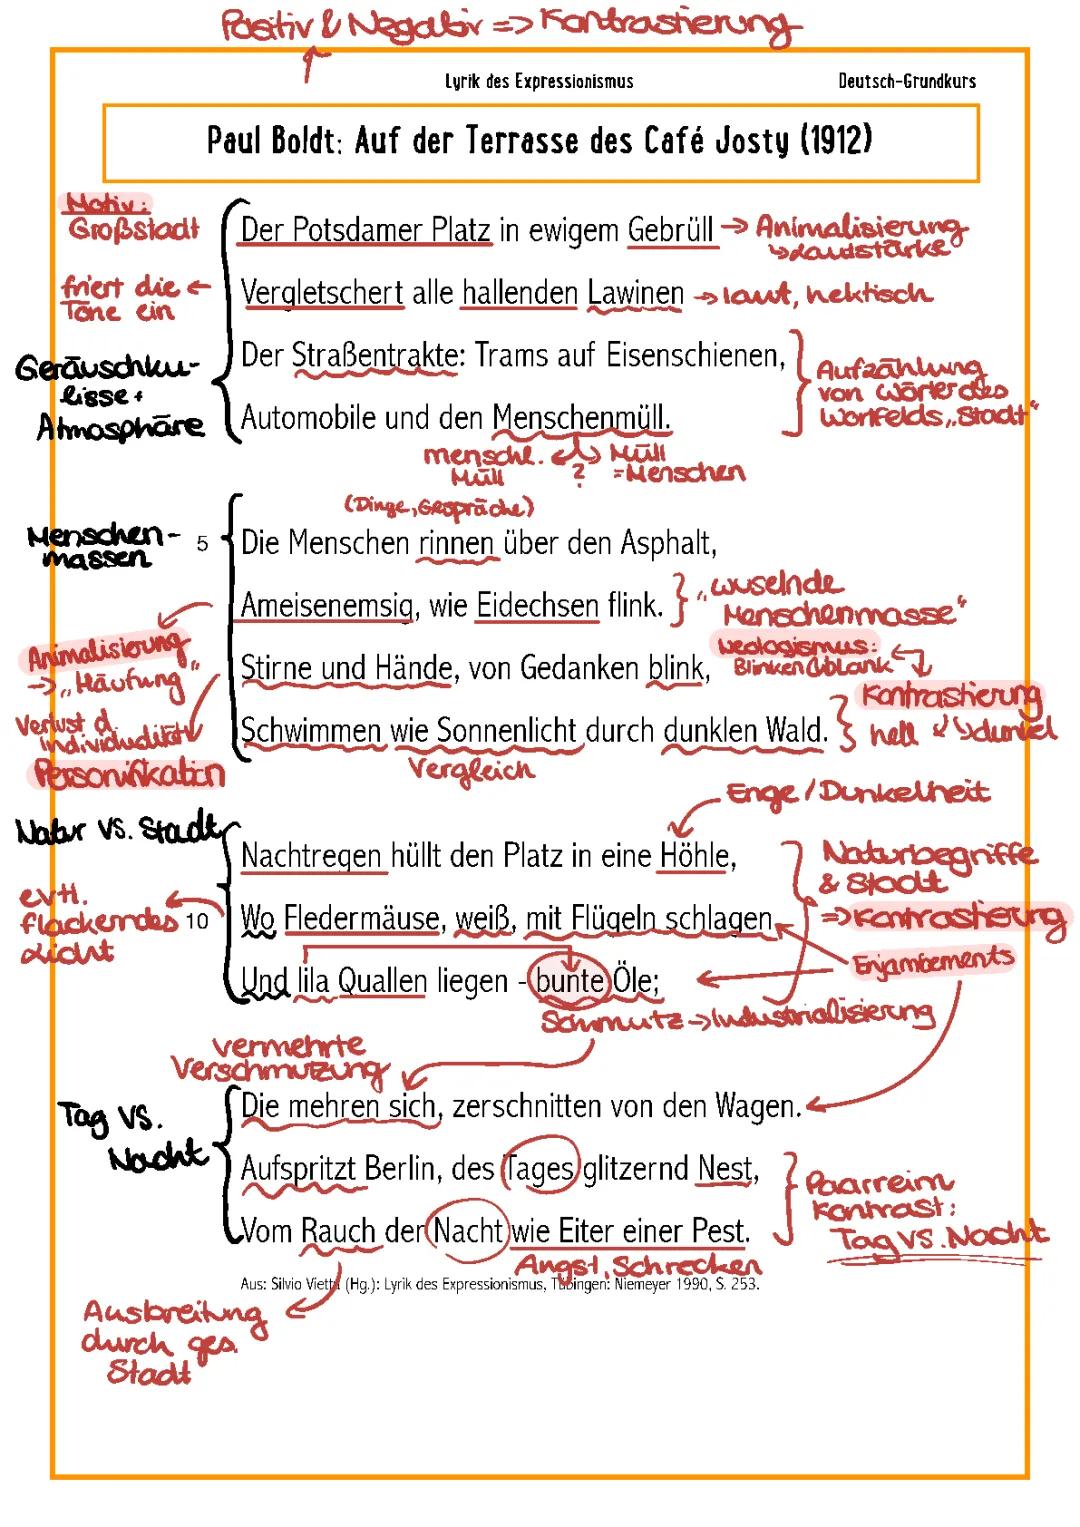 Positiv & Negativ => Kontrastierung
Lyrik des Expressionismus
Deutsch-Grundkurs
Paul Boldt: Auf der Terrasse des Café Josty (1912)
Motiv:
Großstadt
Der Potsdamer Platz in ewigem Gebrüll
→ Animalisierung
↳ Lautstärke
friert die
Töne ein
Vergletschert alle hallenden Lawinen
→ laut, hektisch
Geräuschku-
lisse +
Atmosphäre
Der Straßentrakte: Trams auf Eisenschienen,
Automobile und den Menschenmüll.
Aufzählung
von Wörter des
Wortfelds „Stadt“
menschl.
Müll
?
Müll
=Menschen
(Dinge, Gespräche)
Menschen-
massen
5
Die Menschen rinnen über den Asphalt,
Ameisenemsig, wie Eidechsen flink.
„wuselnde
Menschenmasse“
Animalisierung
→ „Häufung“
Neologismus:
Blinken & blank
Stirne und Hände, von Gedanken blink,
Verlust d.
Individualität
Kontrastierung
hell & dunkel
Schwimmen wie Sonnenlicht durch dunklen Wald.
Personifikation
Vergleich
Enge / Dunkelheit
Natur VS. Stadt
Nachtregen hüllt den Platz in eine Höhle,
Naturbegriffe
& Stadt
=> Kontrastierung
evtl.
flackerndes
Licht
10
Wo Fledermäuse, weiß, mit Flügeln schlagen
Enjambements
Und lila Quallen liegen - bunte Öle;
Schmutz → Industrialisierung
vermehrte
Verschmutzung
Tag VS.
Nacht
Die mehren sich, zerschnitten von den Wagen.
Aufspritzt Berlin, des Tages glitzernd Nest,
Vom Rauch der Nacht wie Eiter einer Pest.
Paarreim
Kontrast:
Tag VS. Nacht
Angst, Schrecken
Aus: Silvio Vietta (Hg.): Lyrik des Expressionismus, Tübingen: Niemeyer 1990, S. 253.
Ausbreitung
durch ges.
Stadt